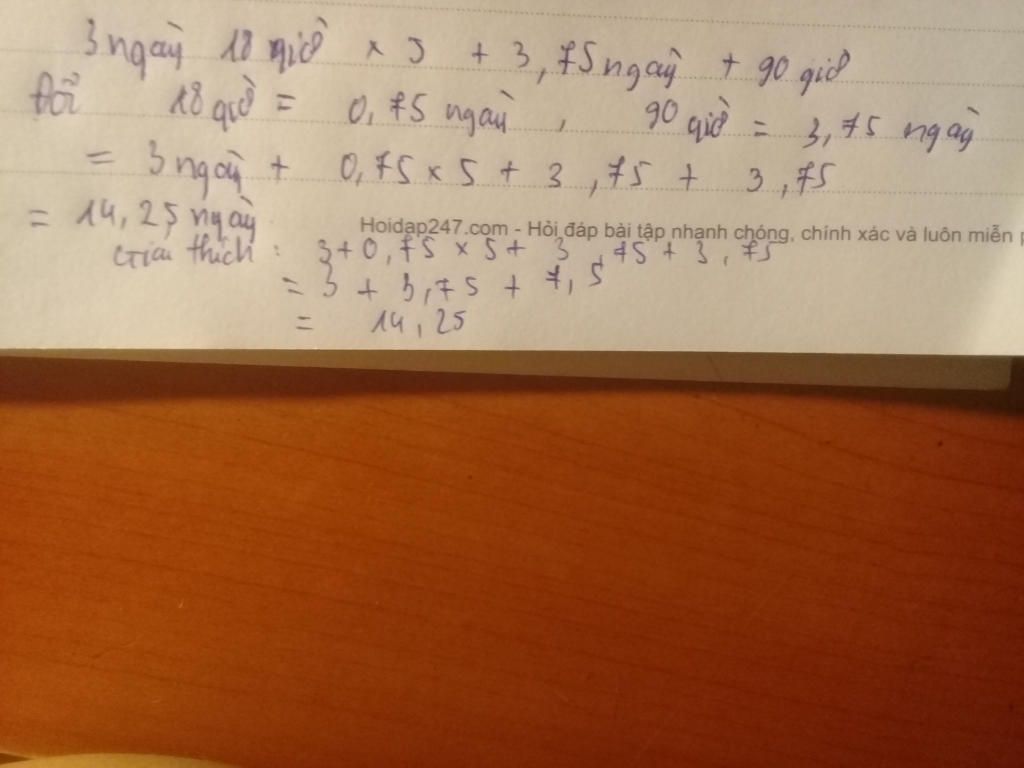 3 ngày 18 giờ × 5 + 3,75 ngày + 90 giờ
Đổi 18 giờ = 0,75 ngày, 90 giờ = 3,75 ngày
= 3 ngày + 0,75 × 5 + 3,75 + 3,75
= 14,25 ngày
Hoidap247.com - Hỏi đáp bài tập nhanh chóng, chính xác và luôn miễn p
Giải thích : 3 + 0,75 × 5 + 3,75 + 3,75
= 3 + 3,75 + 7,5
= 14,25